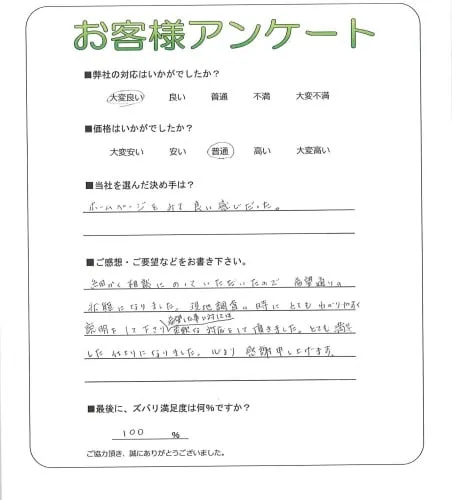 お客様アンケート
■弊社の対応はいかがでしたか？
大変良い 良い 普通 不満 大変不満
■価格はいかがでしたか？
大変安い 安い 普通 高い 大変高い
■当社を選んだ決め手は？
ホームページをみて良い感じだった。
■ご感想・ご要望などをお書き下さい。
細かく相談にのっていただいたので 希望通りの
状態になりました。現地調査の時に とてもわかりやすく
説明をして下さり 対応をして頂きました。とても満足
した仕上りになりました。心より 感謝申し上げます。
■最後に、ズバリ満足度は何%ですか？
100 %
ご協力頂き、誠にありがとうございました。